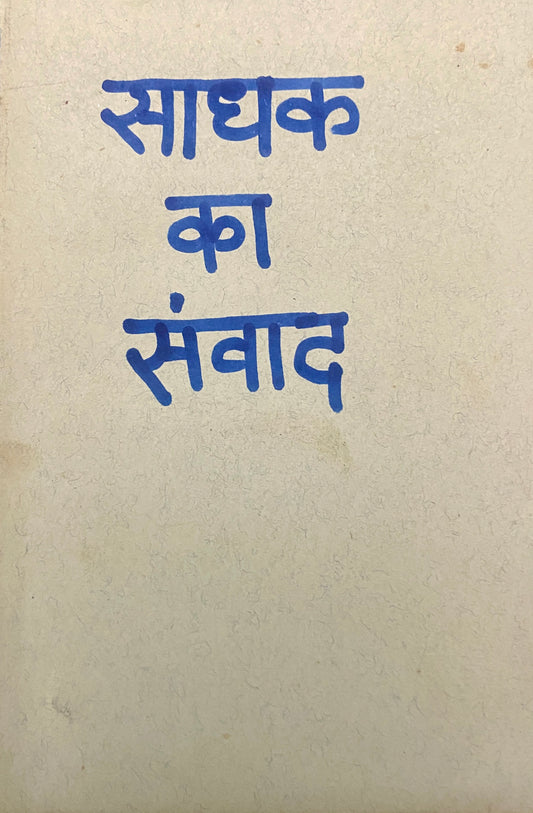 साधक
का
संवाद